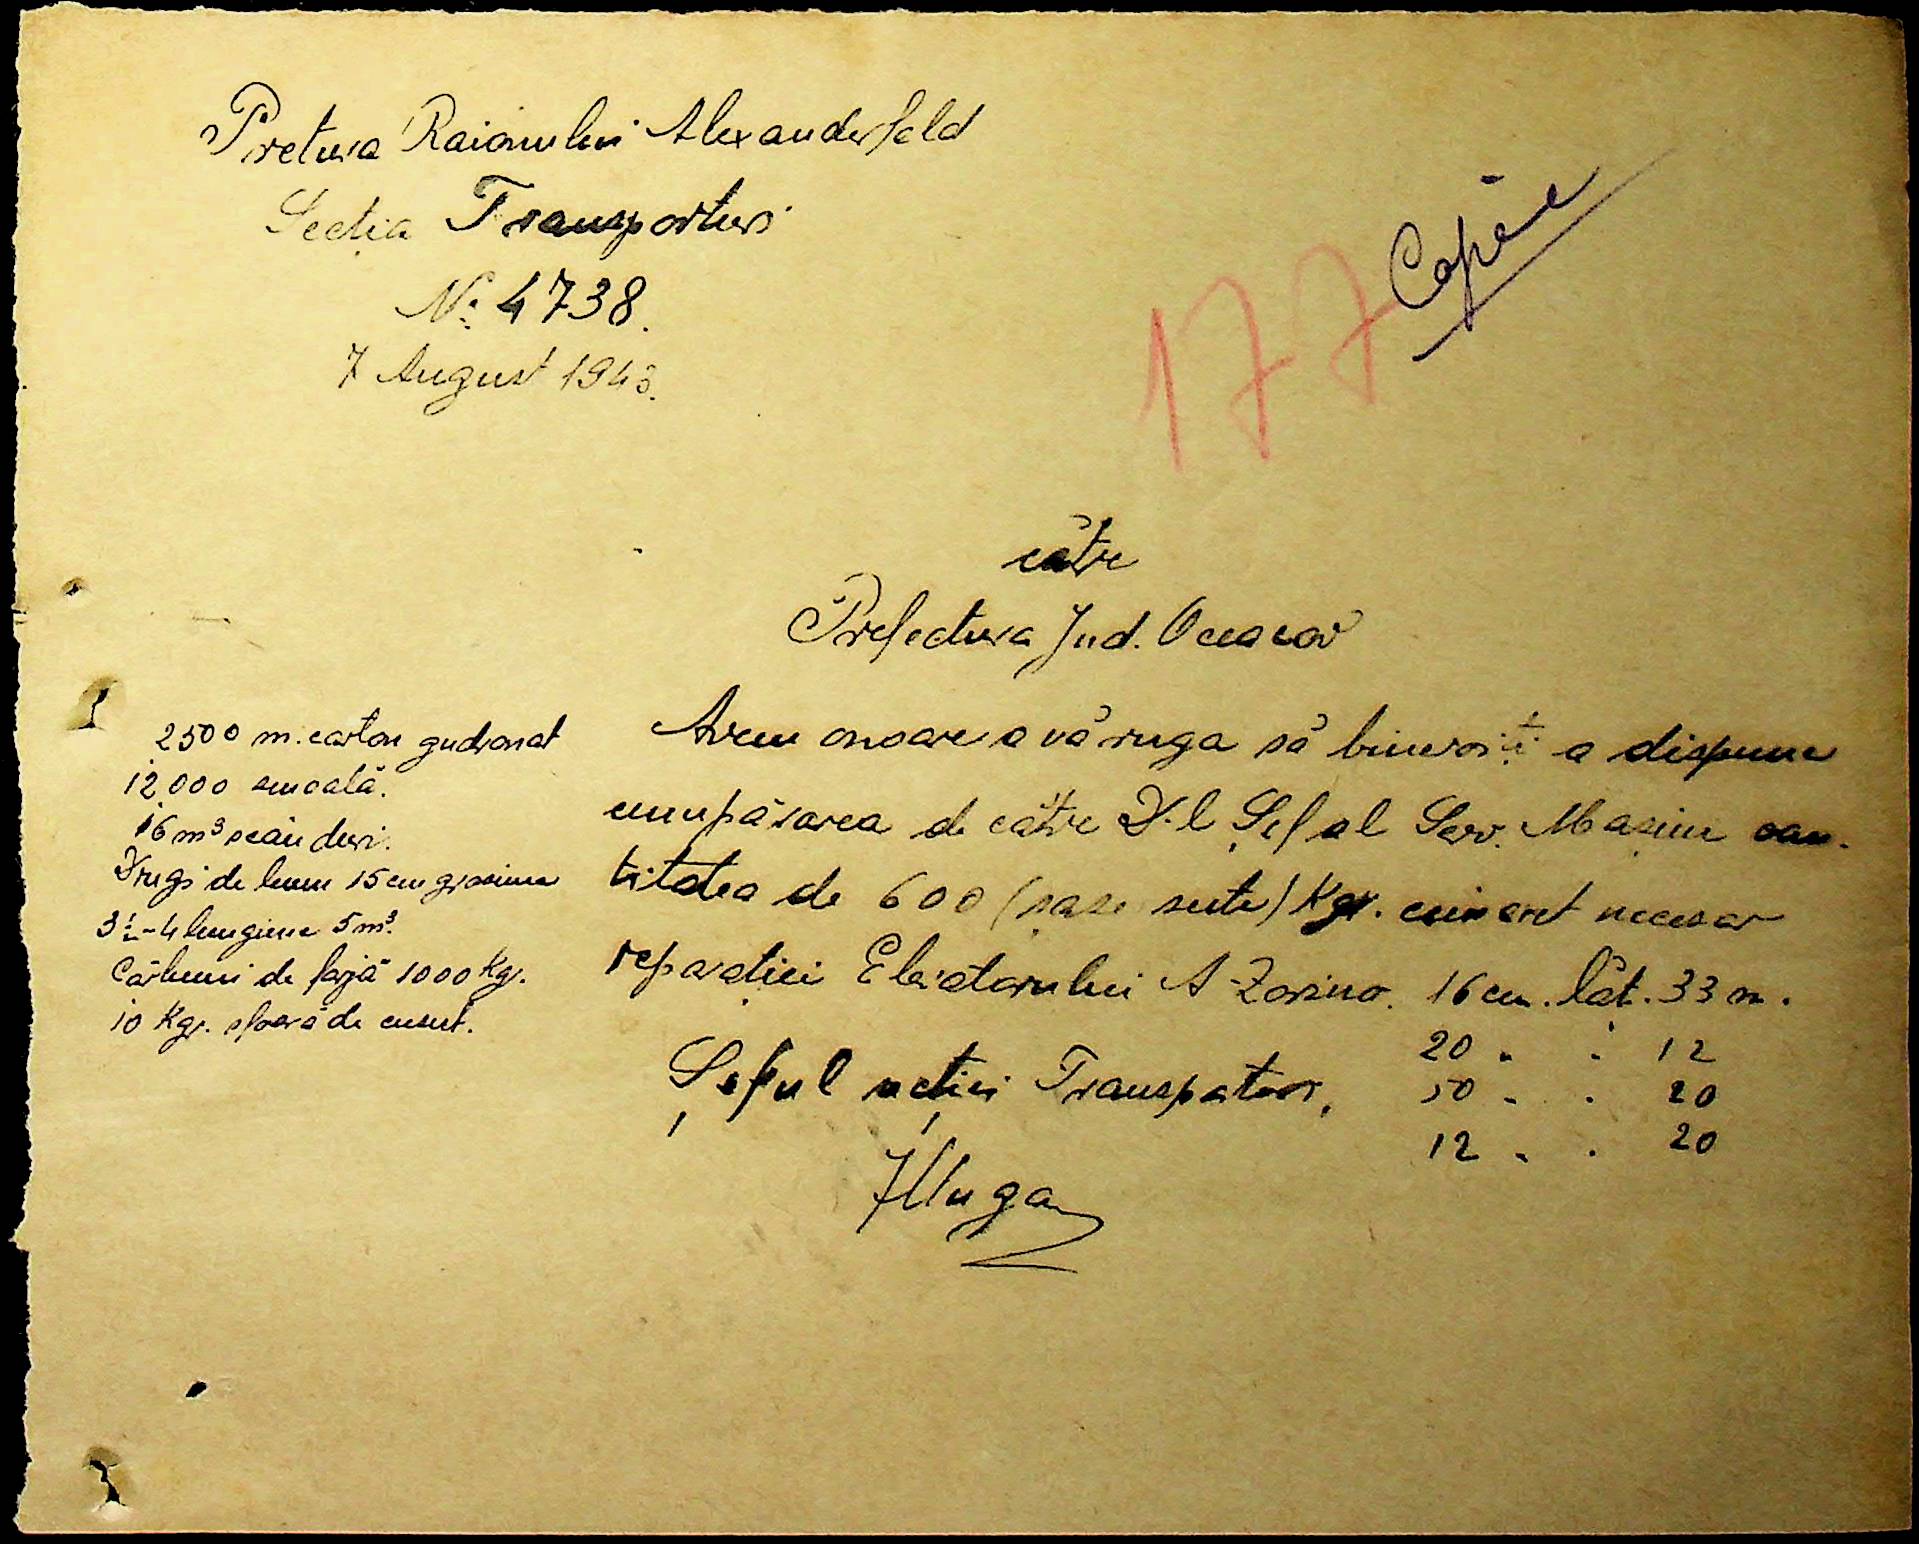 Pretura Raionului Alexanderfeld
Secția Transporturi
No. 4738.
7 August 1943.
177
Copie
către
Prefectura Jud. Oceacov
Avem onoare a vă ruga să binevoiți a dispune
cumpărarea de către D-l Șef al Serv. Mașini can-
titatea de 600 (șase sute) Kgr. necesar
reparației Elevatorului A-Zorino. 16 cm. lăt. 33 m.
20 " " 12
50 " " 20
12 " " 20
Șeful secției Transpotori,
2500 m. carton gudronat
12.000 smoală.
16 m³ scânduri.
Drugi de lemn 15 cm grosime
3½-4 lungime 5 m³.
Cărbuni de forjă 1000 Kgr.
10 Kgr. sfoară de cusut.